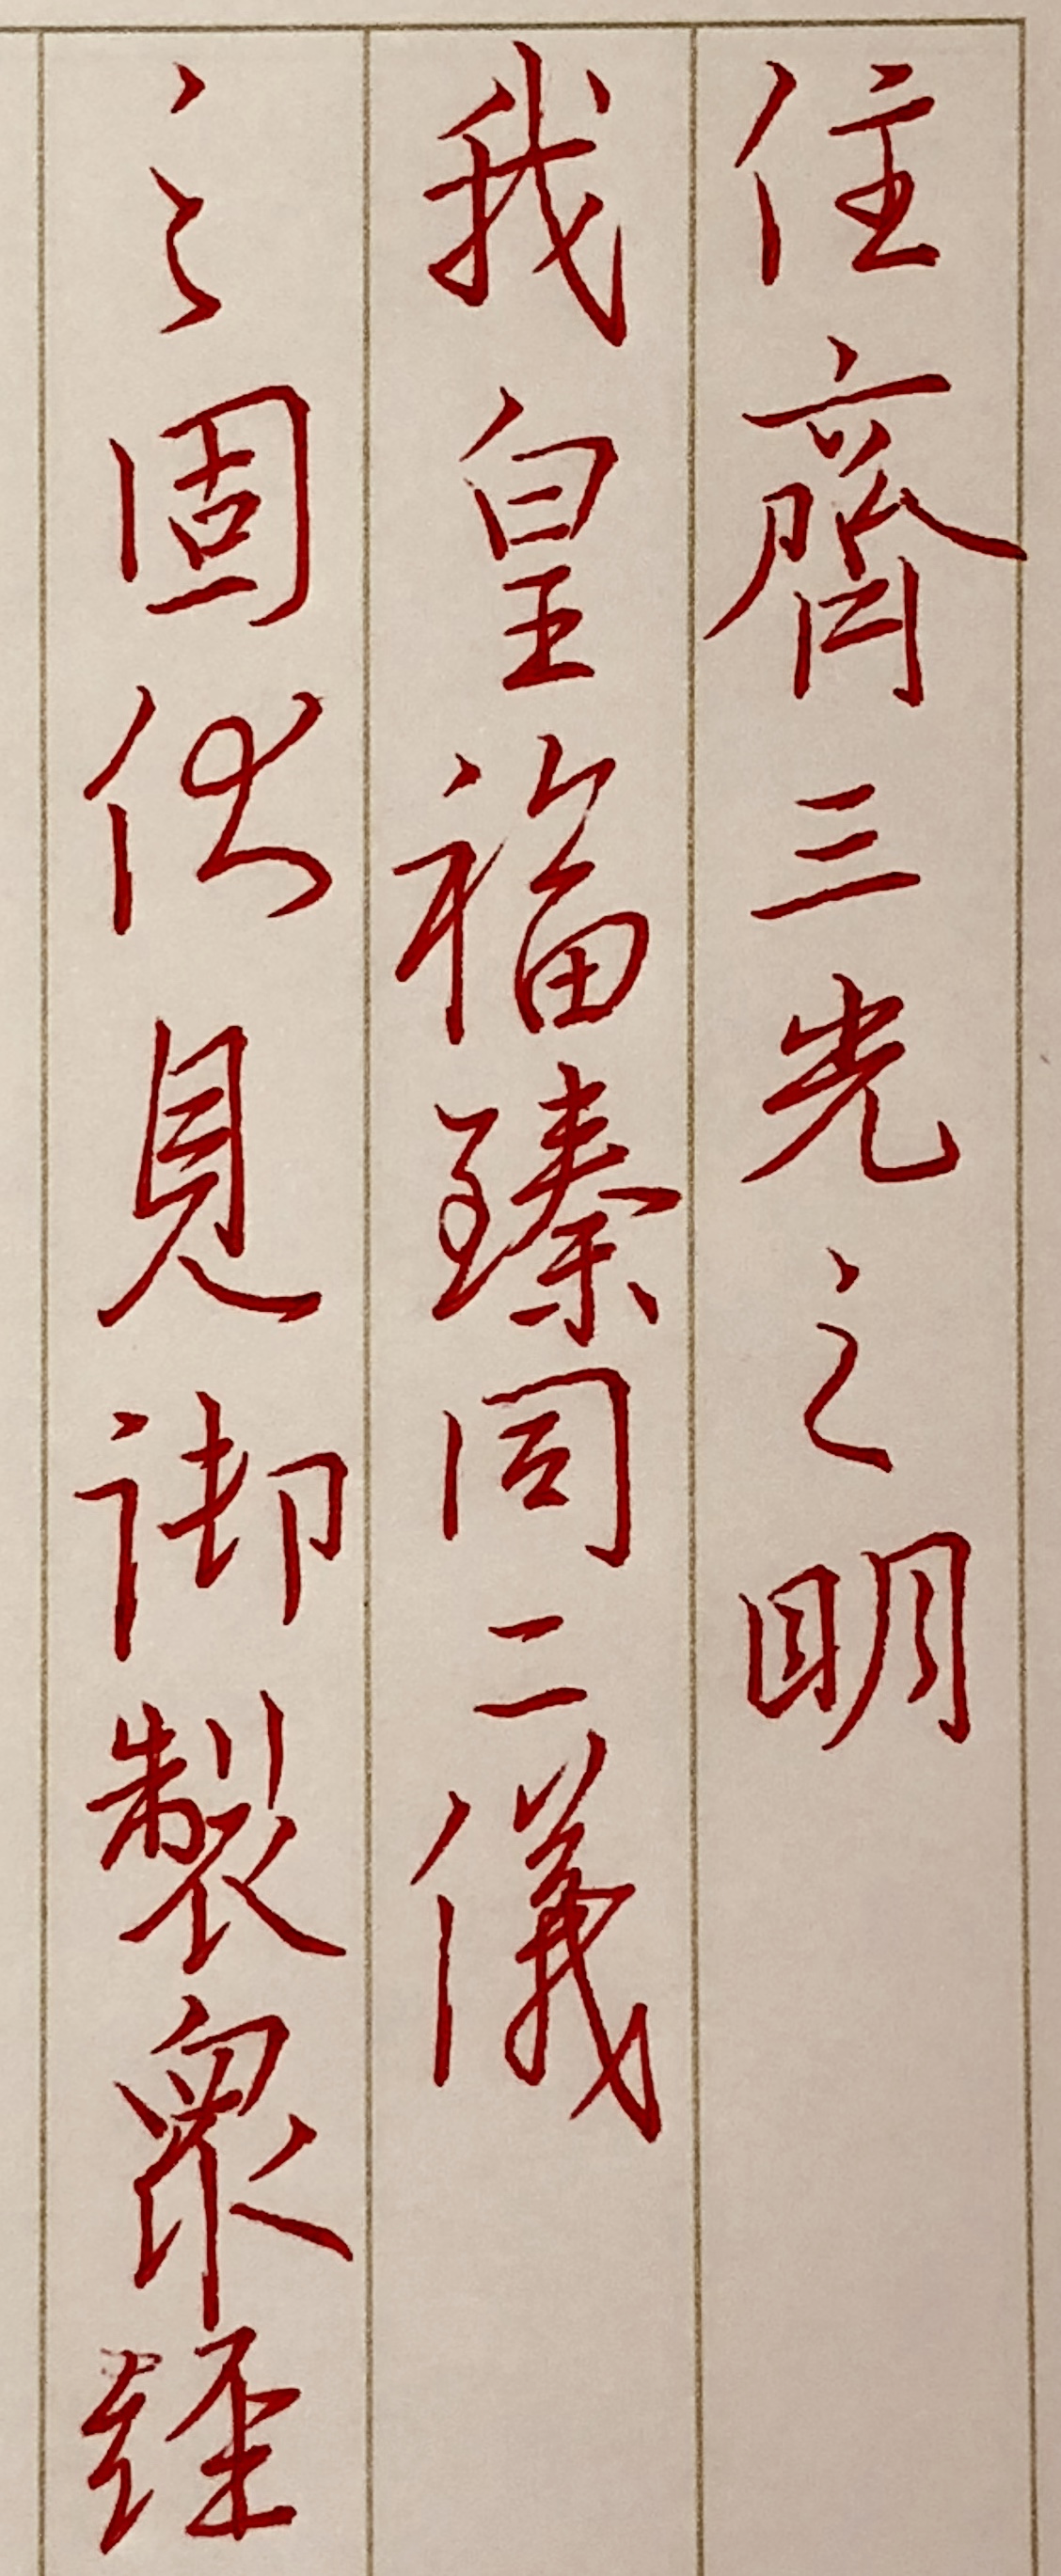 住齊三光之明
我皇福臻同二儀
之固伏見御製眾經